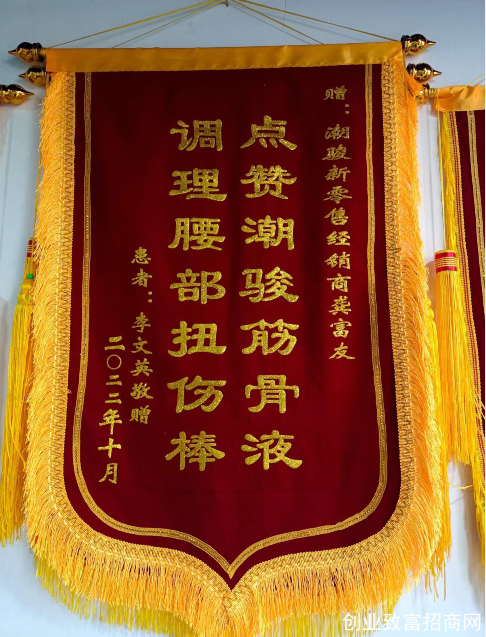 赠：潮骏新零售经销商龚富友
点赞潮骏筋骨液
调理腰部扭伤棒
患者：李文英敬赠
二〇二二年十月
创业致富招商网